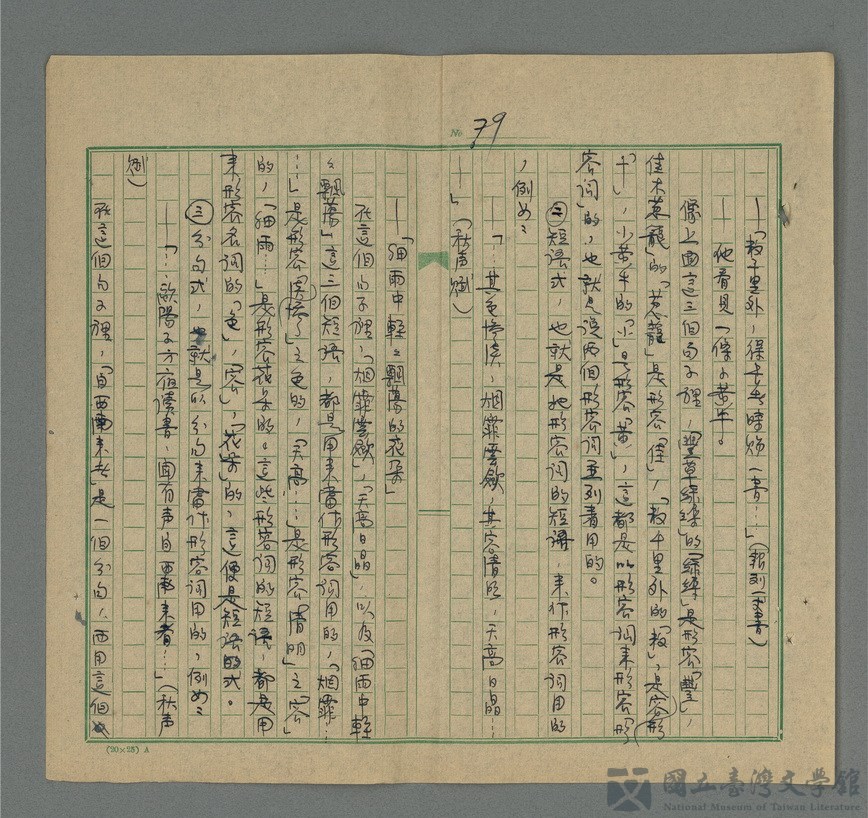 No 79
—「数千里外，得長者時賜一書…」（報刘一丈書）
—他看見一條小黄牛。
像上面這三個句子裡，「豐草綠縟」的「綠縟」是形容「豐」，
佳木葱蘢」的「葱蘢」是形容「佳」，「数千里外的「数」，是容形
「千」，小黄牛的「小」是形容「黄」，這都是以形容詞来形容「形
容詞」的，也就是説两個形容詞並列着用的。
㊁短語式，也就是把形容詞的短語，来作形容詞用的
，例如：
—「…其色惨淡，烟霏雲歛，其容清明，天高日晶…
—」（秋声賦）
—「細雨中輕々飄蕩的花朵」
在這個句子裡，「烟霏雲歛」，「天高日晶」，以及「細雨中輕
々飄蕩」這三個短語，都是用来當作形容詞用的，「烟霏…
…」是形容「淡惨」之色的，「天高…」是形容「清明」之「容」
的，「細雨…」是形容花朵的。這些形容詞的短語，都是用
来形容名詞的「色」，「容」，「花朵」的，這便是短語的式。
㊂分句式，也就是以分句来當作形容詞用的，例如：
—「…歐陽子方夜讀書，聞有声自西南来者…」（秋声
賦）
在這個句子裡，「自西南来者」是一個分句，而用這個
(20×25) A
國立臺灣文學館
National Museum of Taiwan Literature